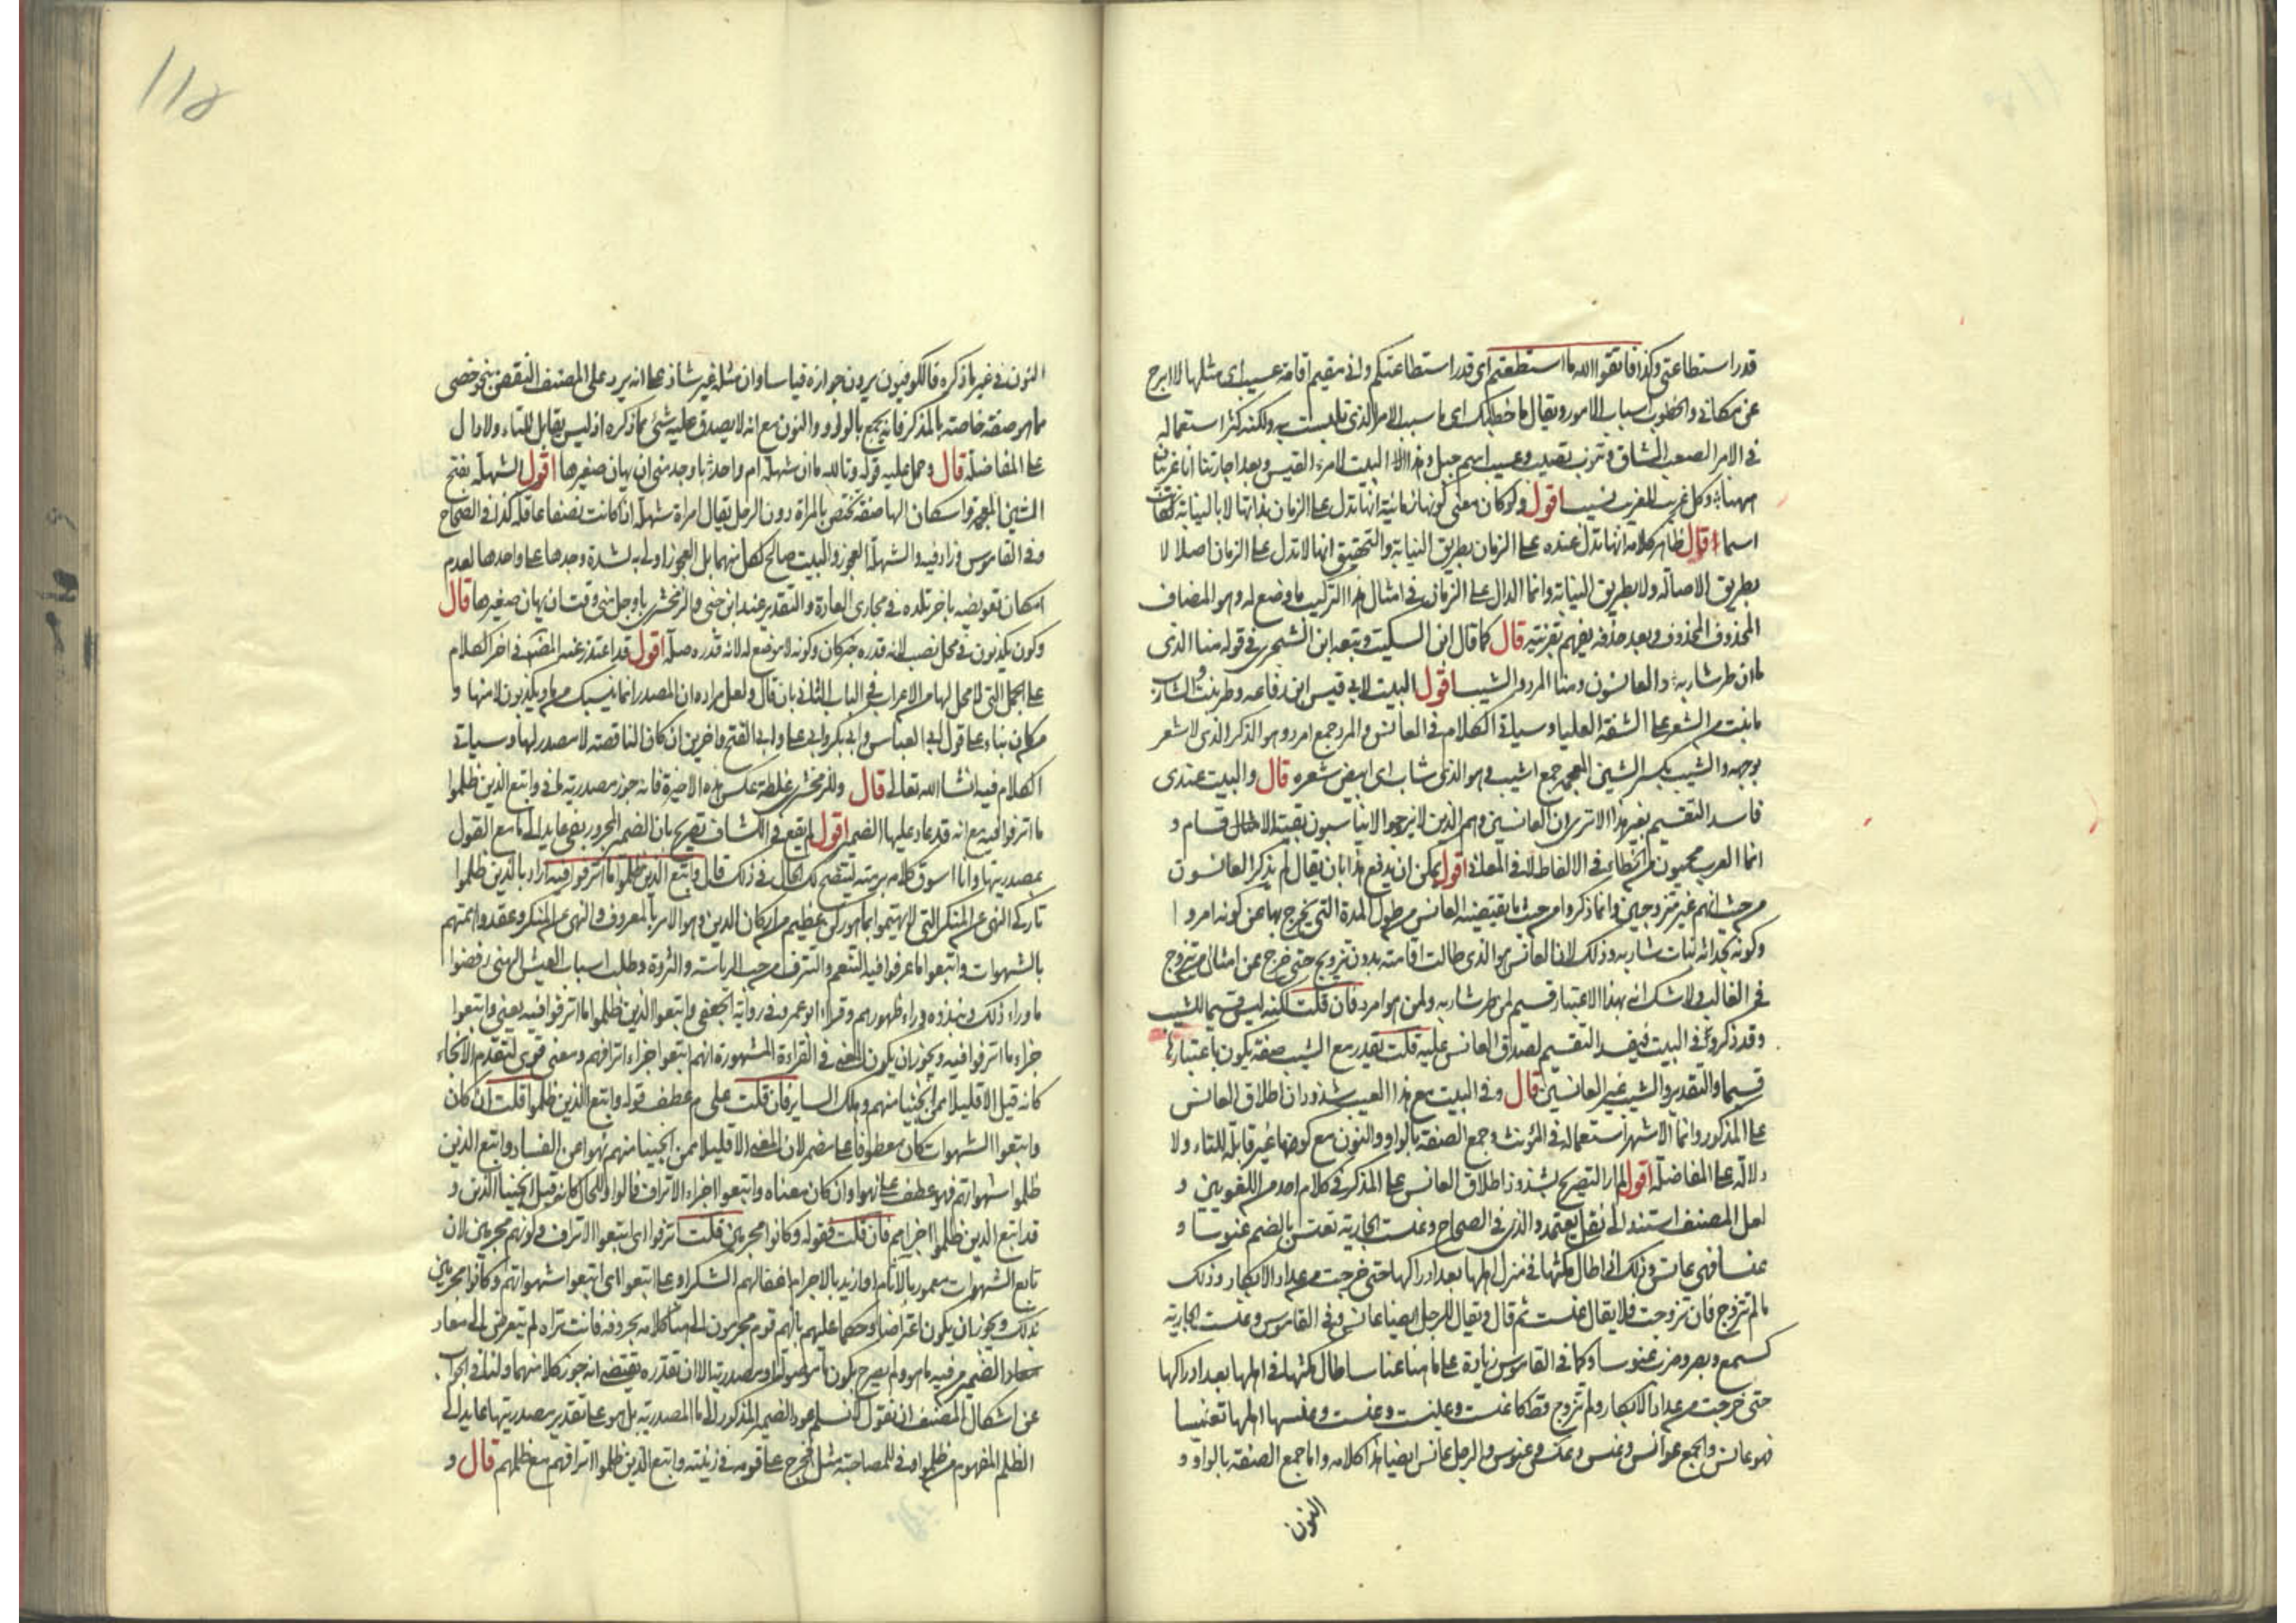 قدر استطاعتي وكذا فاتقوا الله ما استطعتم اى قدر استطاعتكم وانى مقيم اقامة عسيب اى مثلها لا ابرح
عن مكانى والخطوب اسباب الامور ويقال ما خطبك اى ما سبب الامر الذى تلبست به ولكنه كثر استعماله
فى الامر الصعب الشاق وعسيب اسم جبل وهذا البيت لامرء القيس وبعده اجارتنا انا غريبان
ههنا وكل غريب للغريب نسيب اقول ولو كان معنى كونها زمانية انها تدل على الزمان بذاتها لا بالنيابة لكانت
اسما اقول ظاهر كلامه انها تدل عنده على الزمان بطريق النيابة والتحقيق انها لا تدل على الزمان اصلا لا
بطريق الاصالة ولا بطريق النيابة وانما الدال على الزمان فى امثال هذا التركيب ما وضع له وهو المضاف
المحذوف وبعد حذفه يفهم بقرينته قال كما قال ابن السكيت وتبعه ابن الشجرى فى قوله منا الذى
ما ان طر شاربه والعانسون ومنا المرد والشيب اقول البيت لابى قيس ابن رفاعه وطر نبت والشارب
ما ينبت من الشعر على الشفة العليا وسياتى الكلام فى العانس والمرد جمع امرد وهو الذكر الذى لا شعر
بوجهه والشيب بكسر الشين المعجمة جمع اشيب وهو الذى شاب اى ابيض شعره قال والبيت عندى
فاسد التقسيم بغير هذا الا ترى ان العانسين وهم الذين لا يناسبون بقية الاقسام و
انما العرب محميون من الخطاء فى الالفاظ لا فى المعانى اقول يمكن ان يدفع هذا بان يقال لم يذكر العانسون
من حيث انهم غير متزوجين وانما ذكروا من حيث ما يقتضيه العانس من طول المدة التى يخرج بها عن كونه امردا
وكونه نبات شاربه وذلك لان العانس هو الذى طالت اقامته بدون تزويج حتى خرج عن امثاله من تزوج
فى الغالب ولا شك انه بهذا الاعتبار قسيم لمن طر شاربه ولمن هو امرد فان قلت لكنه ليس قسيما للشيب
وقد ذكروا فى البيت فيفسد التقسيم لصدق العانس عليه قلت تقدر مع الشيب صفة يكون باعتبارها
قسيما والتقدير والشيب غير العانسين قال وفى البيت مع هذا العيب شذوذان اطلاق العانس
على المذكر وانما الاشهر استعماله فى المؤنث وجمع الصفة بالواو والنون مع كونها غير قابلة للتاء ولا
دلالة على المفاضلة اقول لم ار التصريح بشذوذ اطلاق العانس على المذكر فى كلام احد من اللغويين و
لعل المصنف استند الى نقل يعتمد والذى فى الصحاح وعنست الجارية تعنس بالضم عنوسا و
عنسا فهى عانس وذلك اذا طال مكثها فى منزل اهلها بعد ادراكها حتى خرجت من عداد الابكار وذلك
ما لم تتزوج فان تزوجت فلا يقال عنست ثم قال ويقال للرجل ايضا عانس وفى القاموس وعنست الجارية
كسمع ونصر وضرب عنوسا وعناسا طال مكثها فى اهلها بعد ادراكها
حتى خرجت من عداد الابكار ولم تتزوج قط كاعنست وعنست وعنسها اهلها تعنيسا
فهو عانس والجمع عوانس وعنس وعنس وعنوس والرجل عانس ايضا هذا كلامه واما جمع الصفة بالواو و
النون
١١٥
النون فى غير ما ذكره فالكوفيون يرون جوازه قياسا وان مثله غير شاذ على انه يرد على المصنف النقض بنحو خصى
مما هو صفة خاصة بالمذكر فانه يجمع بالواو والنون مع انه لا يصدق عليه شئ مما ذكره اذ ليس بقابل للتاء ولا دال
على المفاضلة قال وحمل عليه قوله وتالله ما ان شهلة ام واحد باوجد منى ان يهان صغيرها اقول الشهلة بفتح
الشين المعجمة واسكان الهاء صفة تختص بالمراة دون الرجل يقال امراة شهلة اذا كانت نصفا عاقلة كذا فى الصحاح
وفى القاموس وزاد فيه والشهلة العجوز والبيت صالح لكل منهما بل العجوز اولى به لشدة وجدها على واحدها لعدم
امكان تعويضه باخر تلده فى مجارى العادة والتقدير عند ابن جنى والزمخشرى باوجد منى وقت ان يهان صغيرها قال
وكون يكذبون فى محل نصب لانه قدره خبر كان وكونه لا موضع له لانه قدره صلة اقول قد اعتذر عنه المصنف فى اخر الكلام
على الجمل التى لا محل لها من الاعراب فى الباب الثانى بان قال ولعل مراده ان المصدر انما ينسبك من ما ويكذبون لا منها و
من كان بناء على قول ابى العباس وابى بكر وابى على وابى الفتح واخرين ان كان الناقصة لا مصدر لها وسياتى
الكلام فيه ان شا الله تعالى قال وللزمخشرى غلطة عكس هذه الاخيرة فانه جوز مصدرية ما فى واتبع الذين ظلموا
ما اترفوا فيه مع انه قد عاد عليها الضمير اقول لم يقع فى الكشاف تصريح بان الضمير المجرور بفى عايد الى ما مع القول
بمصدريتها وانا اسوق كلامه برمته ليتضح لك الحال فى ذلك قال واتبع الذين ظلموا ما اترفوا فيه اراد بالذين ظلموا
تاركى النهى عن المنكر التى لم يهتموا بما هو ركن عظيم من اركان الدين وهو الامر بالمعروف والنهى عن المنكر وعقدوا همتهم
بالشهوات واتبعوا ما عرفوا فيه التنعم والتترف من حب الرياسة والثروة وطلب اسباب العيش الهنى ورفضوا
ما وراء ذلك ونبذوه وراء ظهورهم وقراء ابو عمرو فى رواية الجعفى واتبعوا الذين ظلموا ما اترفوا فيه يعنى واتبعوا
جزاء ما اترفوا فيه ويجوز ان يكون المعنى فى القراءة المشهورة انهم اتبعوا جزاء اترافهم ومعنى قوى لتقدم الانجاء
كانه قيل الا قليلا ممن انجينا منهم وهلك الساير فان قلت على م عطف قوله واتبع الذين ظلموا قلت ان كان
واتبعوا الشهوات كان معطوفا على مضمر لان المعنى الا قليلا ممن انجينا منهم نهوا عن الفساد واتبع الذين
ظلموا شهواتهم فهو عطف على نهوا وان كان معناه واتبعوا جزاء الاتراف فالواو للحال كانه قيل انجينا الذين و
قد اتبع الذين ظلموا جزاءهم فان قلت فقوله وكانوا مجرمين قلت اترفوا اى اتبعوا الاتراف وكونهم مجرمين لان
تابع الشهوات مغمور بالاثام او اريد بالاجرام اغفالهم الشكر او على اتبعوا اى اتبعوا شهواتهم وكانوا مجرمين
بذلك ويجوز ان يكون اعتراضا وحكما عليهم بانهم قوم مجرمون الى هنا كلامه بحروفه فانت تراه لم يتعرض الى معاد
الضمير من فيه ما هو ولم يصرح بكون ما موصولة او مصدرية الا ان تقديره يقتضى انه جوز كلا منهما ولنا فى الجواب
عن اشكال المصنف ان نقول لا نسلم عود الضمير المذكور الى ما المصدرية بل هو على تقدير مصدريتها عايد الى
الظلم المفهوم من ظلموا وفى للمصاحبة مثل فخرج على قومه فى زينته واتبع الذين ظلموا اترافهم مع ظلمهم قال و